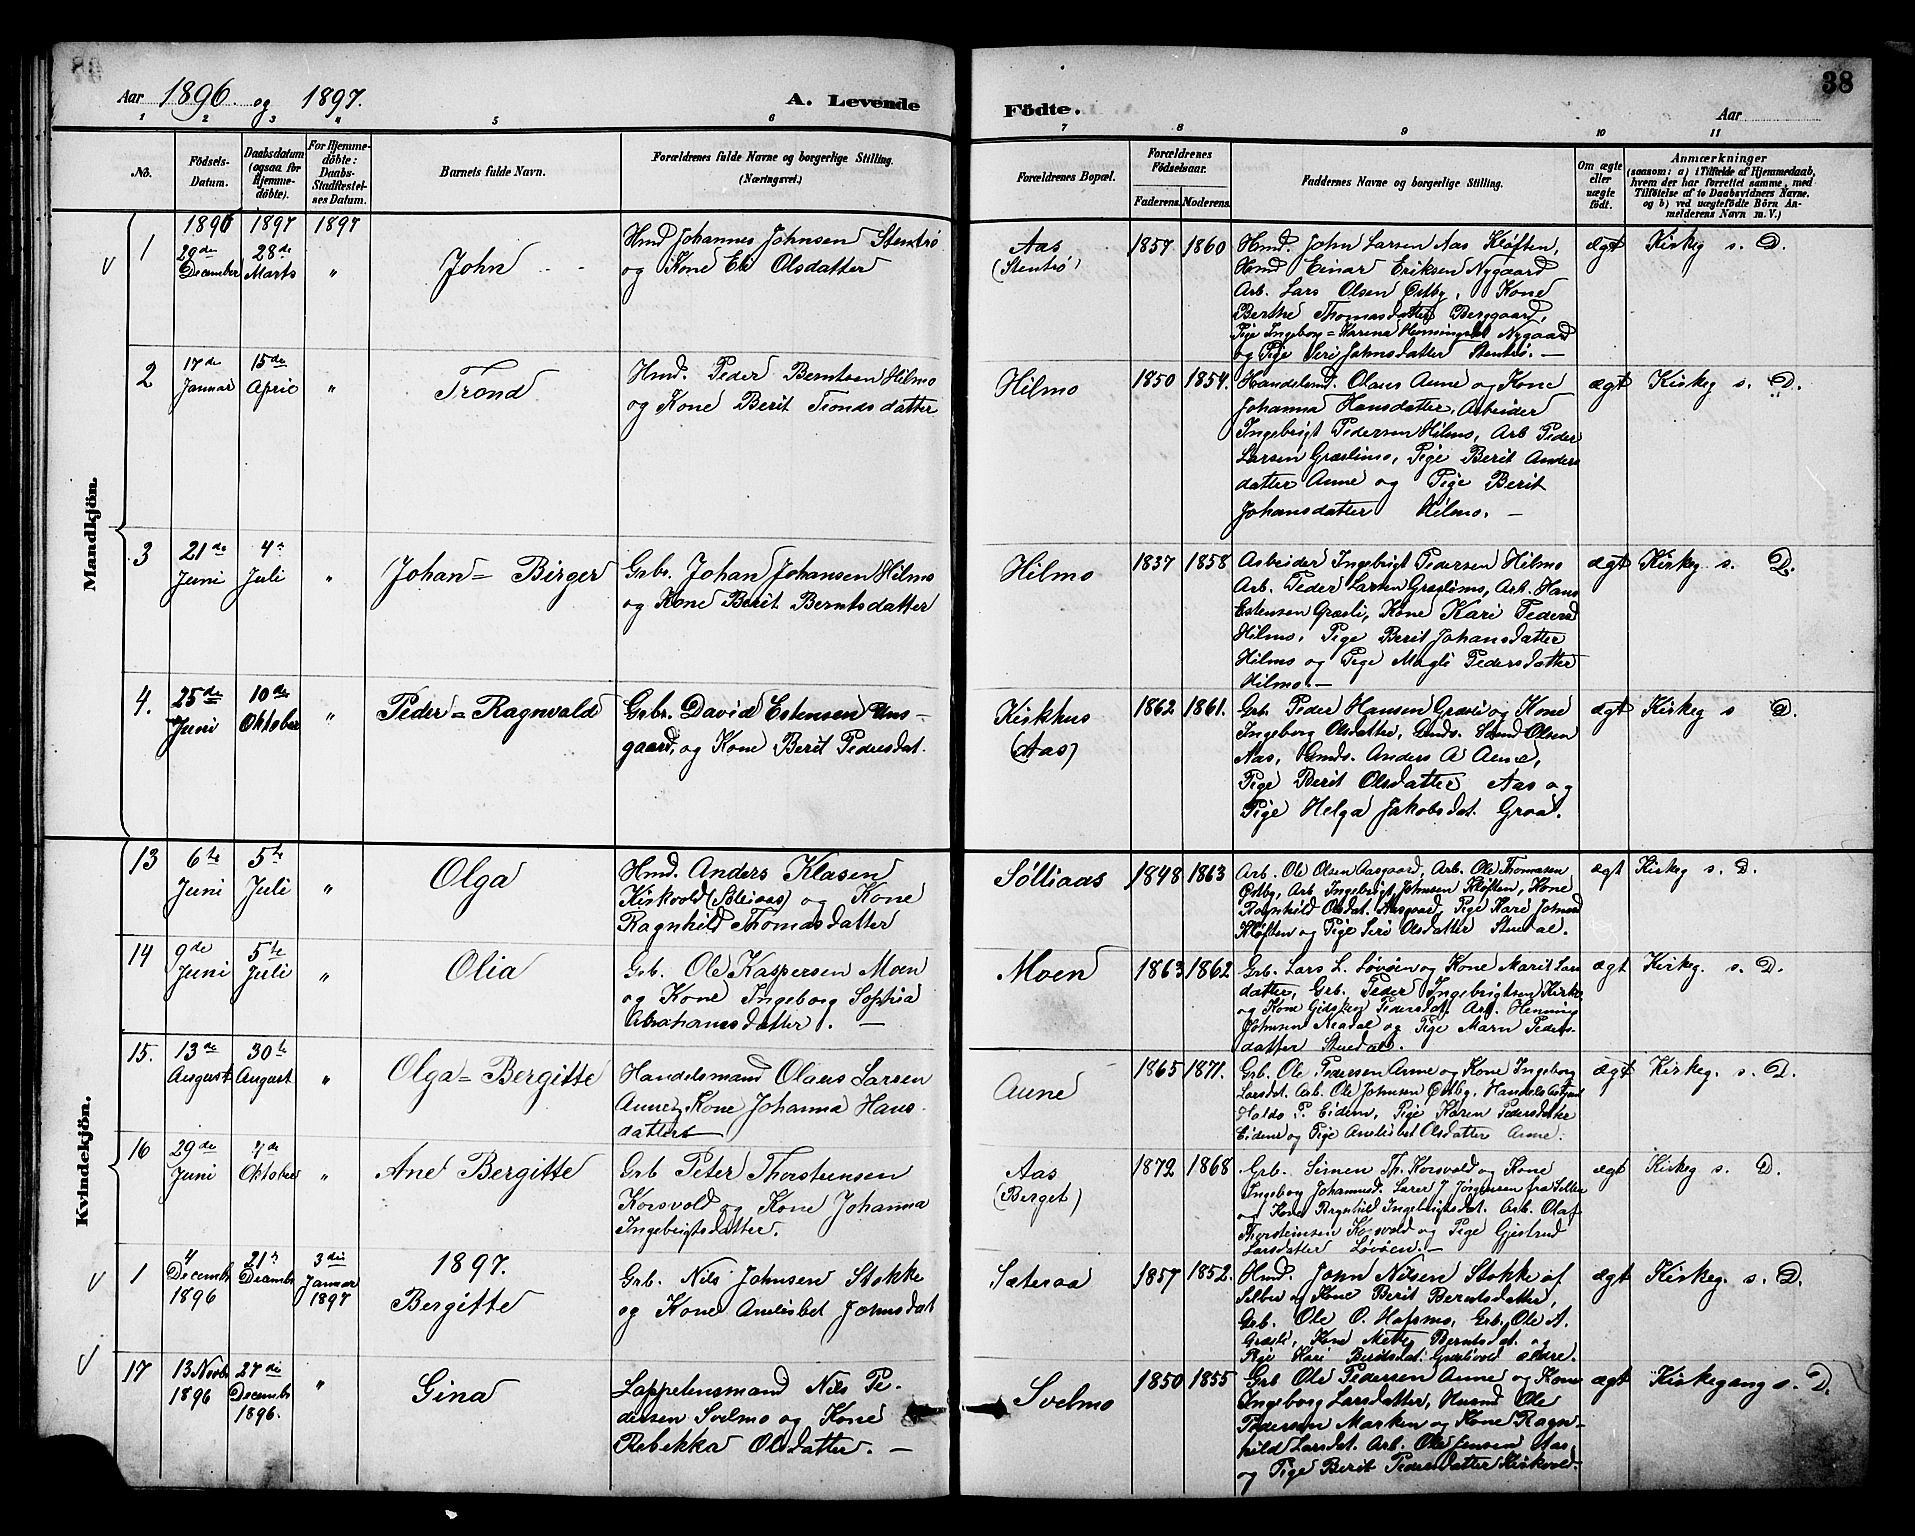 38
Aar 1896. og 1897.
A. Levende
Födte.
Aar
1 2 3 4 5 6 7 8 9 10 11
No.
Födsels-Datum.
Daabsdatum (ogsaa for Hjemmedöbte).
For Hjemmedöbte: Daabs-Stadfestelses Datum.
Barnets fulde Navn.
Forældrenes fulde Navne og borgerlige Stilling.
(Næringsvei.)
Forældrenes Bopæl.
Forældrenes Födselsaar.
Faderens. Moderens.
Faddernes Navne og borgerlige Stilling.
Om ægte eller uægte födt.
Anmærkninger
(saasom: a) i Tilfælde af Hjemmedaab, hvem der har forrettet samme, med Tilföielse af to Daabsvidners Navne. og b) ved uægtefödte Börn Anmelderens Navn m. V.)
Mandkjön.
1896 1897 1897
1
29de December
28de Marts
"
John
Hmd Johannes Johnsen Stentrö
og Kone Eli Olsdatter
Aas
(Stentrö)
1857 1860
Hmd. John Larsen Aas Kløften,
Hmd Einar Eriksen Nygaard
Arb. Lars Olsen Østby, Kone
Berthe Thomasdatter Berggaard,
Pige Ingeborg=Karina Henningsdt Nygaard
og Pige Siri Johnsdatter Stentrö. —
ægt
Kirkeg s. D.
2
17de Januar
15de April
"
Trond
Hmd. Peder Berntsen Hilmo
og Kone Berit Trondsdatter
Hilmo
1850 1854.
Handelsmd. Olaus Aune og Kone
Johanna Hansdatter, Arbeider
Ingebrigt Pedersen Hilmo, Arb Peder
Larsen Græslimo, Pige Berit Anders
datter Aune og Pige Berit
Johansdatter Hilmo. —
ægt
Kirkeg s. D.
3
21de Juni
4de Juli
"
Johan= Birger
Grbr. Johan Johansen Hilmo
og Kone Berit Berntsdatter
Hilmo
1837 1858
Arbeider Ingebrigt Pedersen Hilmo
Arb. Peder Larsen Græslimo, Arb. Hans
Estensen Græsli, Kone Kari Peders
Hilmo, Pige Berit Johansdatter
Hilmo og Pige Magli Pedersdatter
Hilmo. —
ægt
Kirkeg s. D.
4.
25de Juni
10de Oktober
"
Peder= Ragnvald
Grbr. David Estensen Uns-
gaard, og Kone Berit Pedersdat.
Kirkhus
(Aas)
1862 1861.
Grb. Peder Hansen Græsli og Kone
Ingeborg Olsdatter, Olsen
Aas, Anders A Aune,
Pige Berit Olsdatter Aas og
Pige Helga Jakobsdat. Groa.
ægt
Kirkeg s D.
Kvindekjön.
13
6te Juni
5te Juli
"
Olga
Hmd. Anders Klasen
Kirkvold (Sölliaas) og Kone
Ragnhild Thomasdatter
Sölliaas
1848 1863
Arb. Ole Olsen Aasgaard, Arb. Ole Thomasen
Østby, Arb Ingebrigt Johnsen Kløften, Kone
Ragnhild Olsdat. Aasgaard, Pige Kari Johnsd
Kløften og Pige Siri Olsdatter Stuedal.
ægt
Kirkeg s. D.
14
9de Juni
5te Juli
"
Olia
Grb. Ole Kaspersen Moen
og Kone Ingeborg Sophia
Abrahamsdatter. —
Moen
1863 1862
Grb. Lars L. Løvøen og Kone Marit Lars
datter, Grb. Peder Ingebrigtsen Kirke
og Kone Pedersdt. Arb. Henning
Johnsen Neadal og Pige Marn Peders-
datter Stuedal.
ægt
Kirkeg. s. D.
15.
13de August
30te August
"
Olga= Bergitte
Handelsmand Olaus Larsen
Aune, Kone Johanna Hans-
datter
Aune
1865 1871.
Grb. Ole Pedersen Aune og Kone Ingeborg
Larsdat. Arb. Ole Johnsen Østby, Handelsbestyrer
Haldo P. Eidem, Pige Karen Pedersdatter
Eidem og Pige Anelisbet Olsdatter Aune.
ægt
Kirkeg. s. D.
16
29de Juni
4de Oktober
"
Ane Bergitte
Grb Peter Thorsteinsen
Korsvold og Kone Johanna
Ingebrigtsdatter.
Aas
(Berget)
1872 1868
Grb. Simen Th. Korsvold og Kone
Ingeborg Johannesd. Lærer J. Jørgensen fra Selbu
og Kone Ragnhild Ingebrigtsdat. Arb. Olaf
Thorsteinsen Korsvold og Pige Gjertrud
Larsdatter Løvøen. —
ægt
Kirkeg s. D.
1
4 Decembr 1896
21de Decembr
3die Januar 1897
1897.
Bergitte
Grb. Nils Johnsen Stokke
og Kone Anelisbet Johnsdat
Sæteraa
1857 1852.
Hmd. John Nilsen Stokke af
Selbu og Kone Berit Berntsdatter,
Grb. Ole O. Hofsmo, Grb. Ole A.
Græsli, Kone Mette Berntsdat. og
Pige Kari Berntsdat. Græslivold øvre.
ægt
Kirkeg. s. D.
17
13 Novbr 1896
27die Decembr 1896.
"
Gina
Lappelensmand Nils Pe-
dersen Svelmo og Kone
Rebekka Olsdatter. —
Svelmo
1850 1855
Grb Ole Pedersen Aune og Kone
Ingeborg Larsdatter, Husmd Ole
Pedersen Marken og Kone Ragn-
hild Larsdat. Arb. Ole Jensen Aas,
og Pige Berit Pedersdatter Kirkvold.
ægt
Kirkegang s. D.